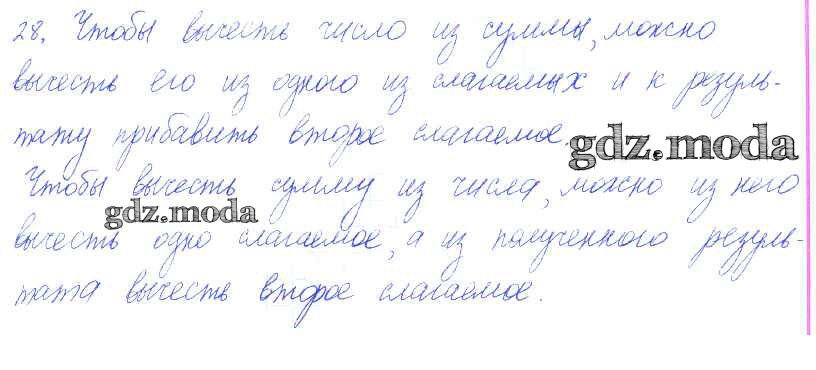 28. Чтобы вычесть число из суммы, можно
вычесть его из одного из слагаемых и к резуль-
тату прибавить второе слагаемое.
gdz.moda
Чтобы вычесть сумму из числа, можно из него
gdz.moda
вычесть одно слагаемое, а из полученного резуль-
тата вычесть второе слагаемое.